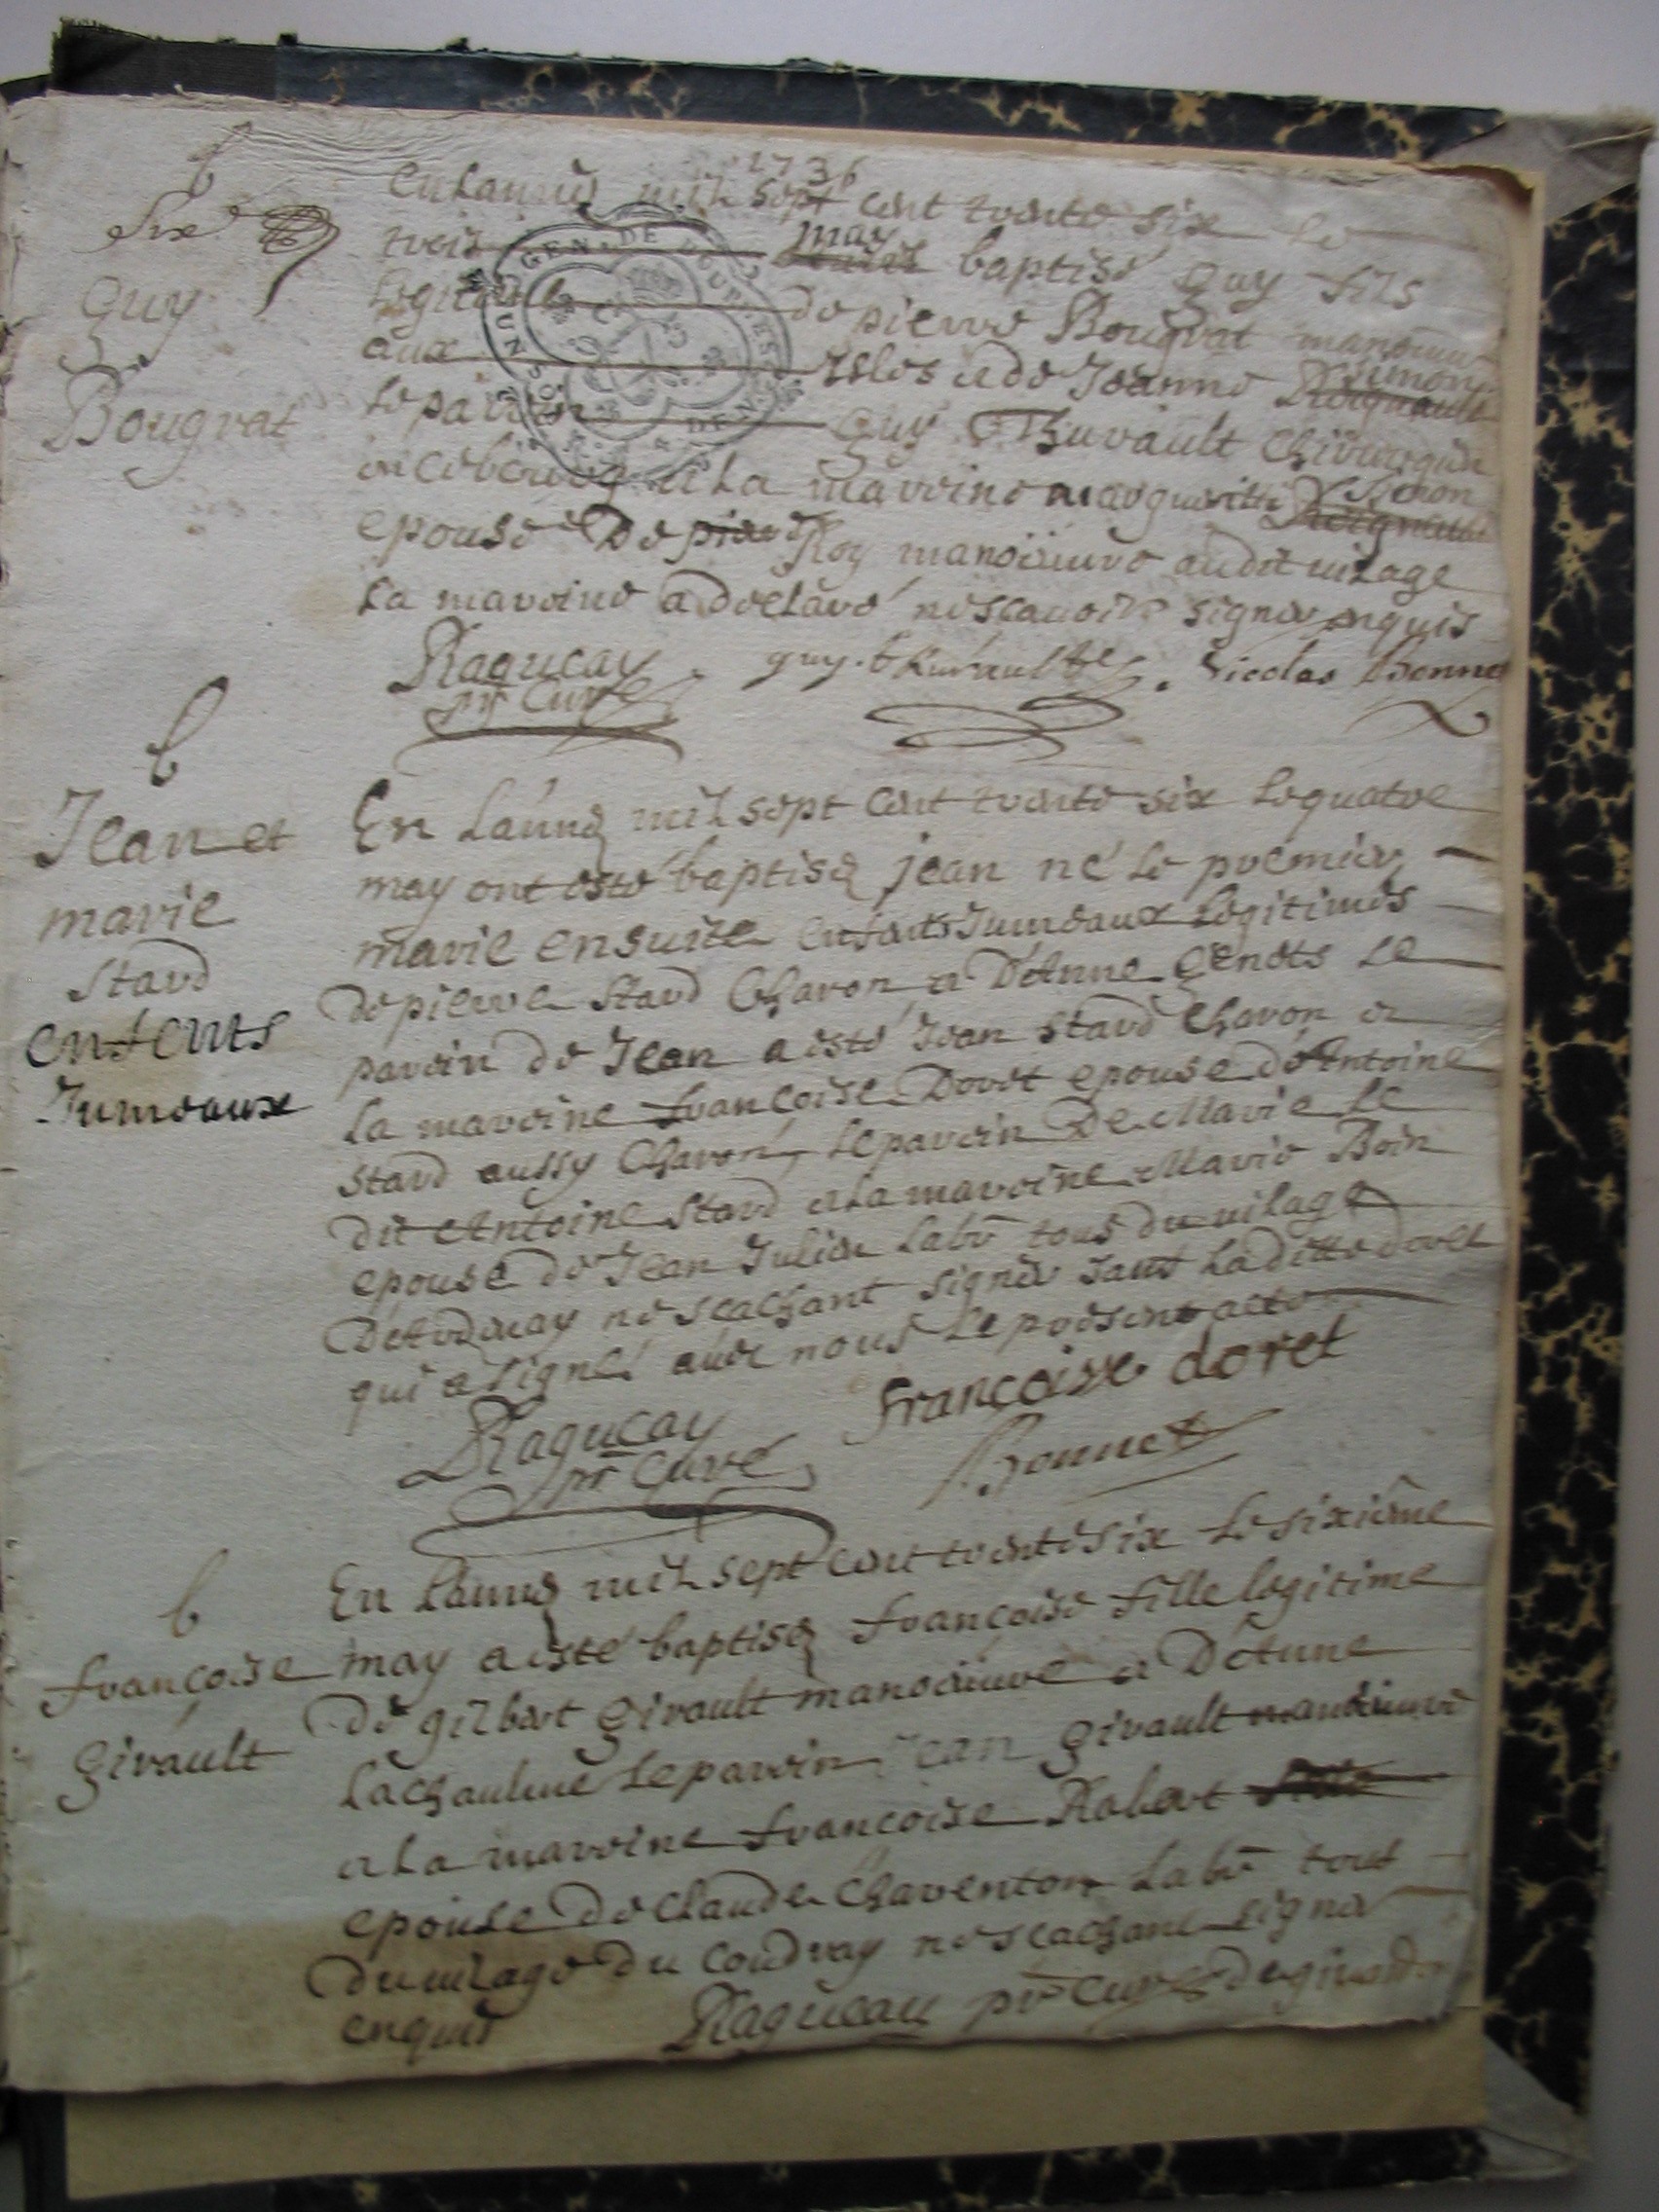 1736
b
Sixe
Guy
Bougrat
En Lannéé mil sept cent trente six le
trois may baptisé Guy fils
legitime de pierre Bougrat manoeuvre
aux Isles et de Jeanne Simon
le parein Guy Thurault chirurgien
et La maroine margueritte Simon
epouse De pierre Roy manoeuvre audit vilage
La maroine a declaré ne scavoir signer enquis
Ragueau guy thurault Nicolas Bonnet
ptr Curé
b
Jean et
marie
Stard
enfents
Jumeaux
En L'année mil sept cent trente six le quatre
may ont esté baptisé jean né le premier
marie ensuite enfants Jumeaux Legitimes
de pierre Stard Charon et D'Anne Genets Le
parein de Jean a esté Jean Stard Charon et
La maroine francoise Doret epouse d'Antoine
Stard aussy Charon, Le parein De Marie Le
dit Antoine Stard et La maroine Marie Boin
epouse de Jean Julien Labr tous du vilage
ne scachant signer sauf La ditte doret
qui a signé avec nous Le present acte
Ragueau francoisse doret
ptr Curé Bonnet
b
françoise
Girault
En L'année mil sept cent trente six le sixième
may a esté baptisé francoise fille legitime
de gilbert Girault manoeuvre et D'Anne
Lachaulme Le parein jean Girault manoeuvre
et La maroine francoise Robert
epouse De Claude Chaventon Labr tous
Du vilage Du Coudray ne scachant signer
enquis Ragueau ptr Curé